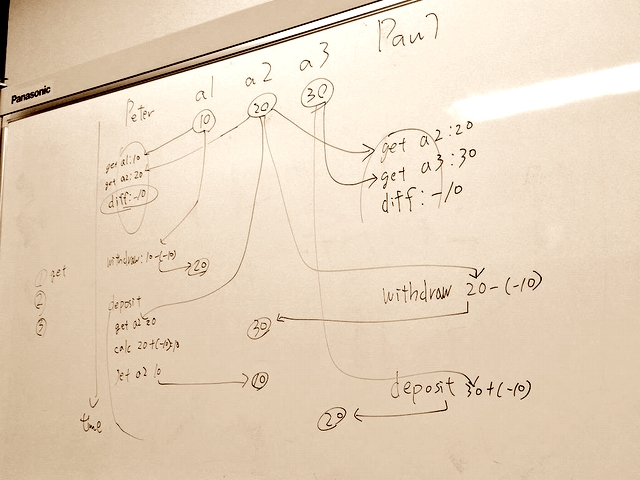 Panasonic
Peter a1 a2 a3 Paul
10 20 30
get a1:10
get a2:20
diff:-10
get a2:20
get a3:30
diff:-10
1 get
2
3
withdraw:10-(-10)
20
withdraw 20-(-10)
30
deposit
get a2 20
calc 20+(-10)=10
set a2 10
10
deposit 30+(-10)
20
time